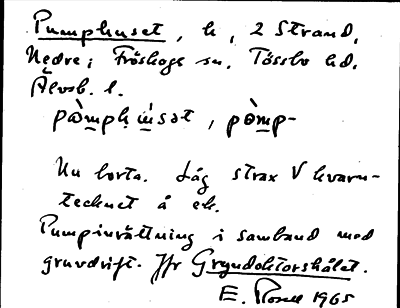 Pumphuset, h, 2 Strand,
Nedre; Fröskoge sn. Tössbo hd.
Älvsb. l.
pòmphu̇̀sət, pòmp-
Nu borta. Låg strax V kvarn-
tecknet å ek.
Pumpinrättning i samband med
gruvdrift. Jfr Gryndoktorshålet.
E. Rosell 1965